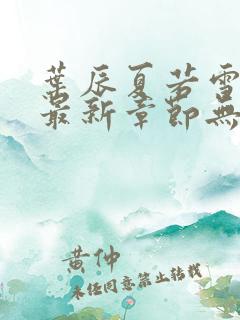 葉辰夏若雪
最新章節無
黃仲
未经同意禁止转载